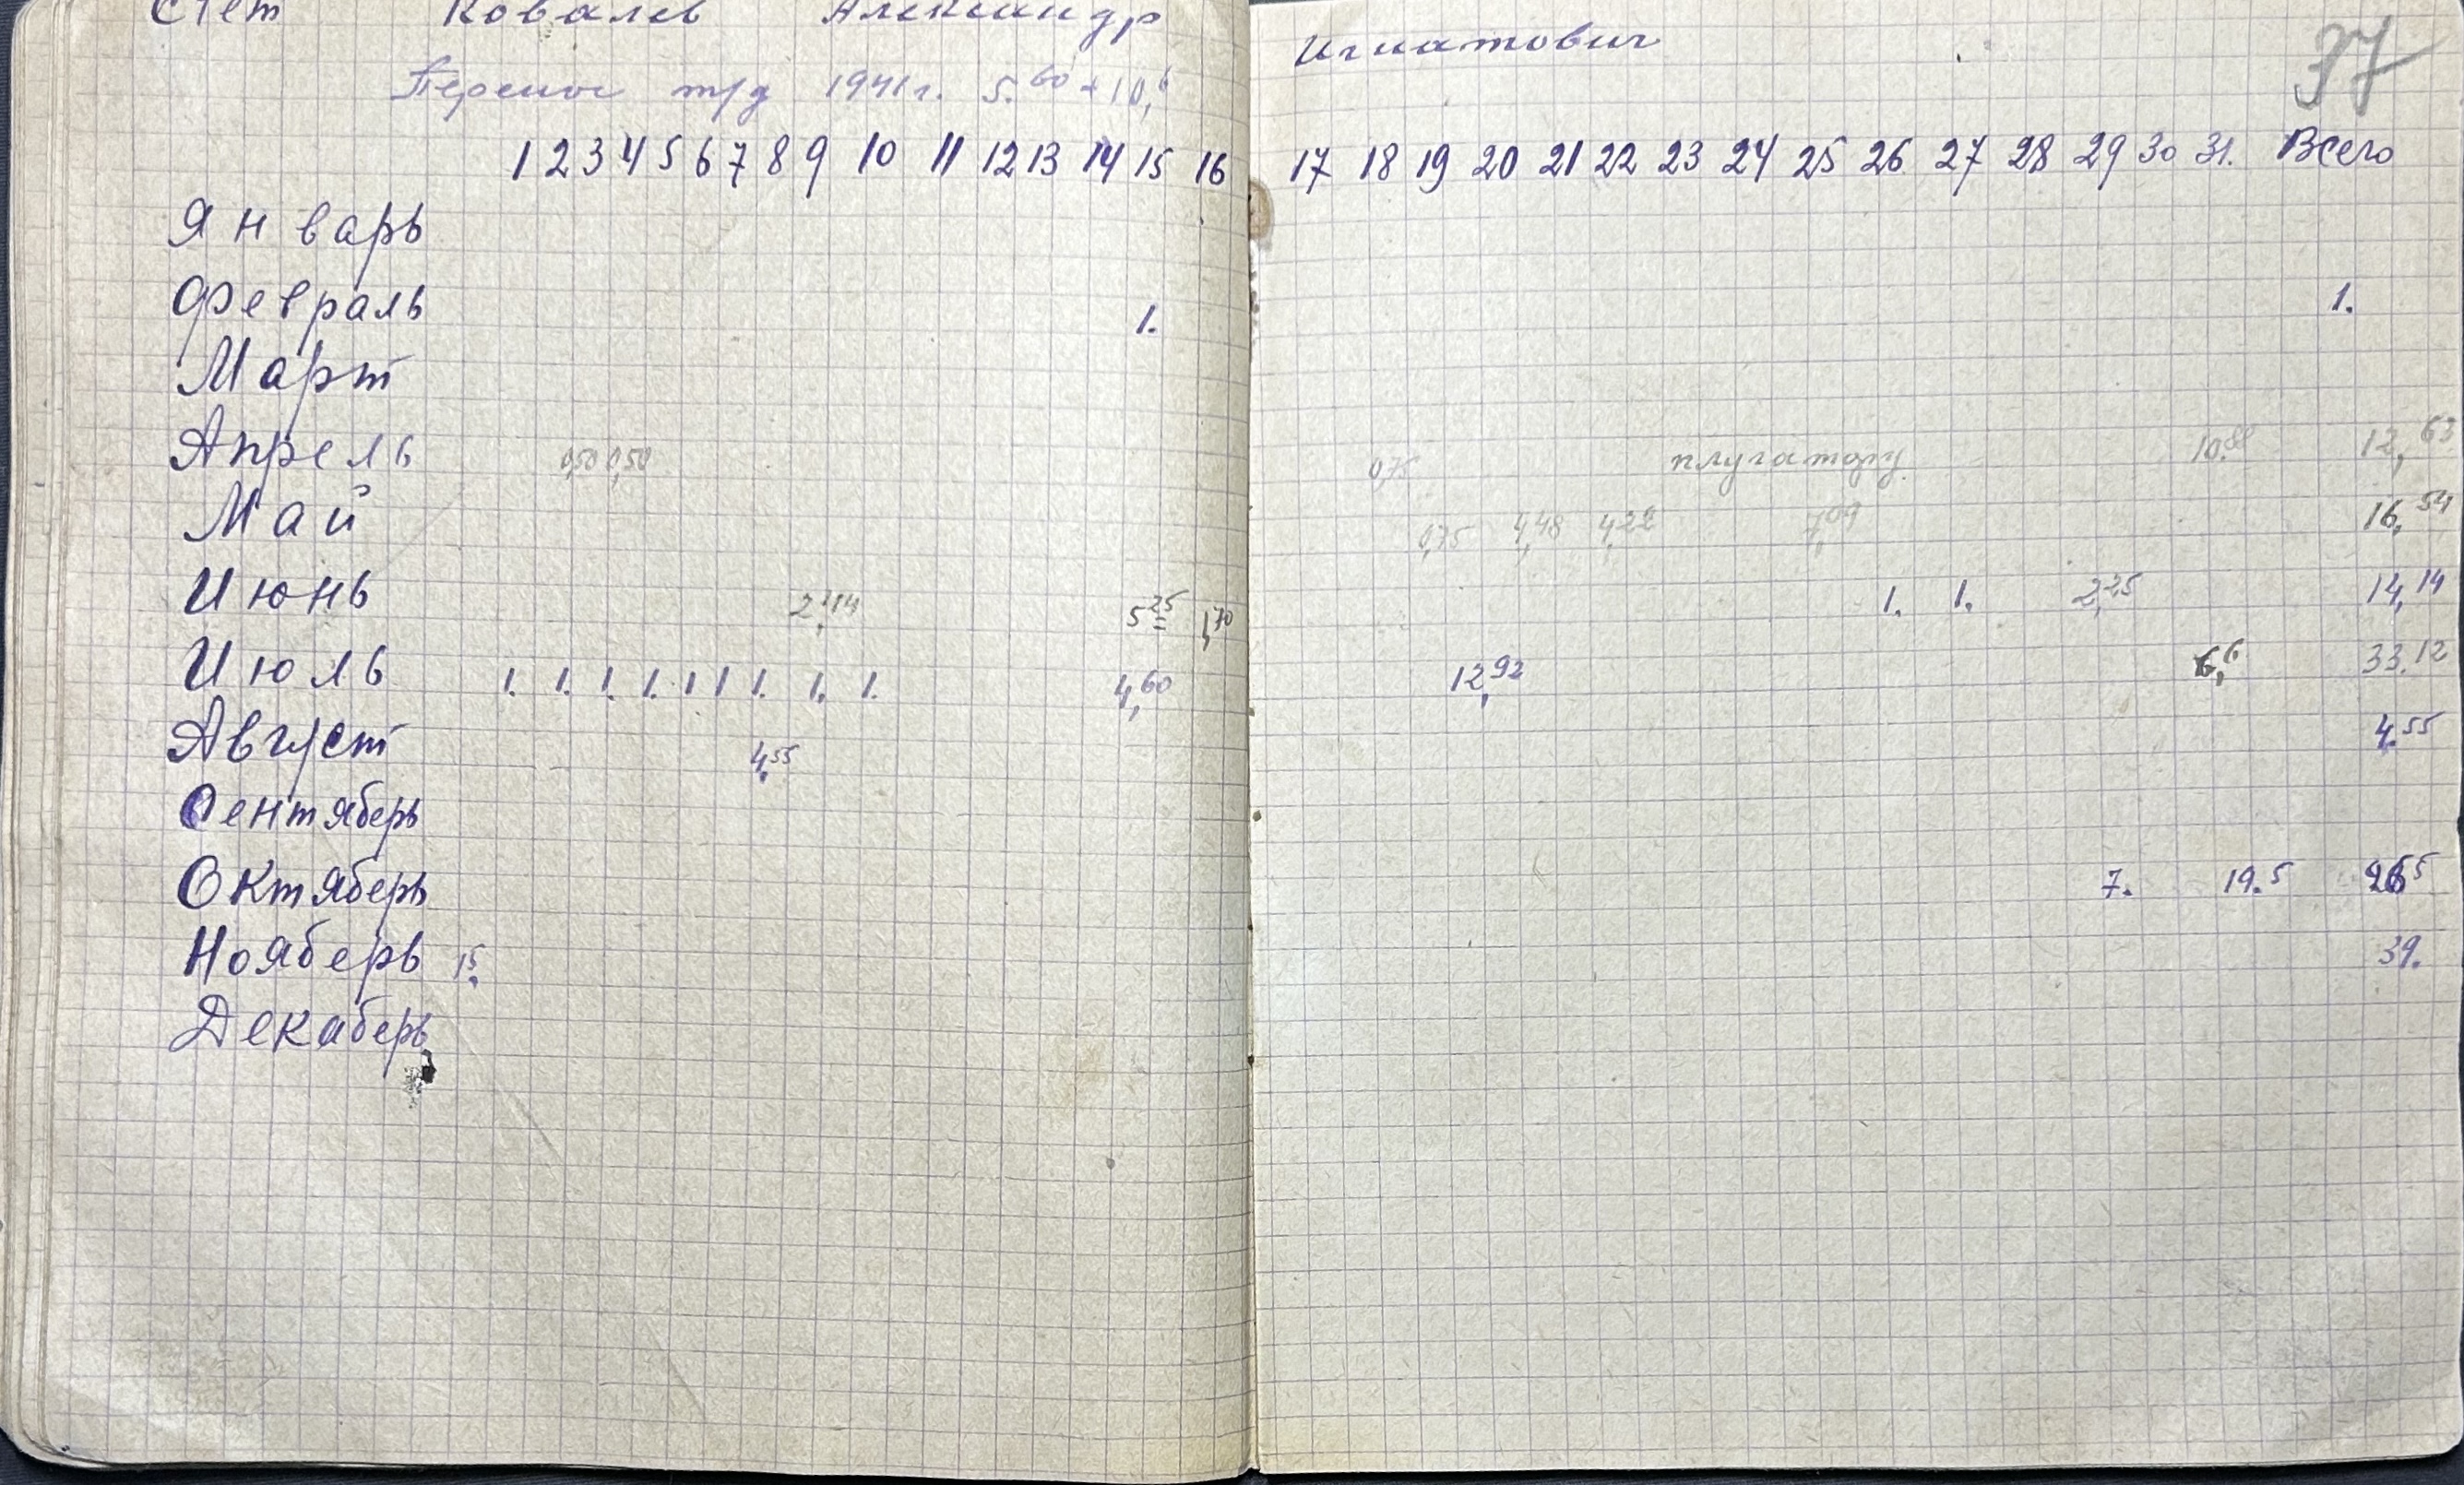 Счет Ковалев Александр Игнатович 37
Перенос тр/д 1941 г. 5.60 + 10,6
1 2 3 4 5 6 7 8 9 10 11 12 13 14 15 16 17 18 19 20 21 22 23 24 25 26 27 28 29 30 31. Всего
Январь
Февраль 1. 1.
Март
Апрель 0,50 0,50 0,75 плугатору. 10.88 12,63
Май 0,75 4,48 4,22 7,09 16,54
Июнь 2,14 5 25 1,70 1. 1. 2,25 14,14
Июль 1. 1. 1. 1. 1 1 1. 1. 1. 4,60 12,92 6,6 33.12
Август 4,55 4.55
Сентяберь
Октяберь 7. 19.5 26 5
Нояберь 15. 39.
Декаберь